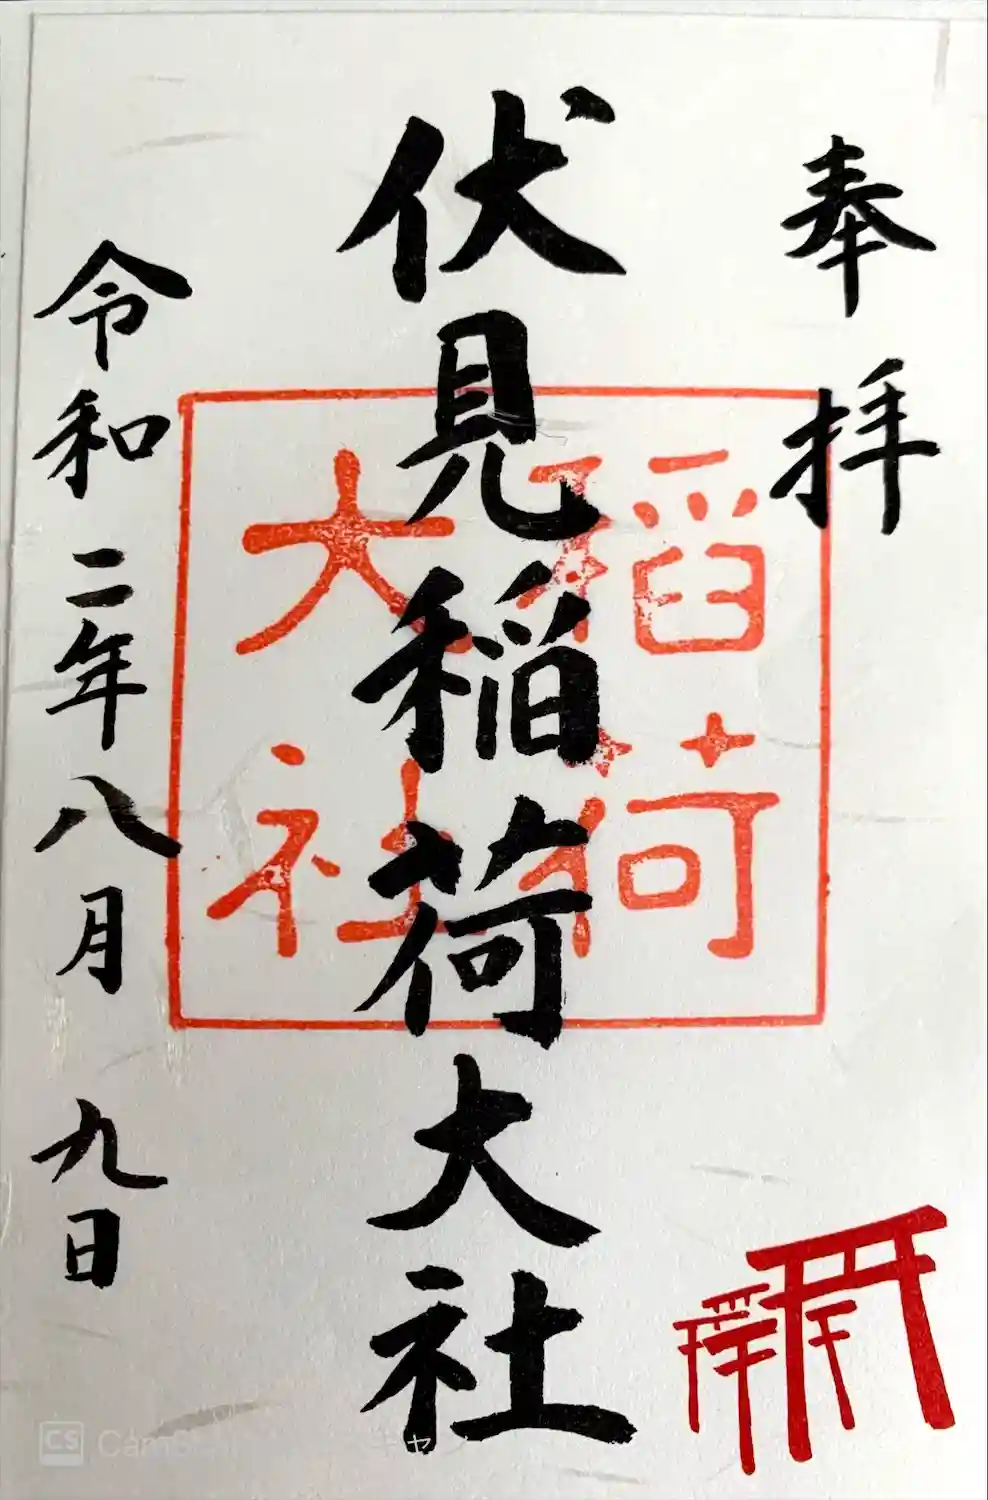 奉拝
伏見稲荷大社
稲荷
大社
令和二年八月九日
CS CamS